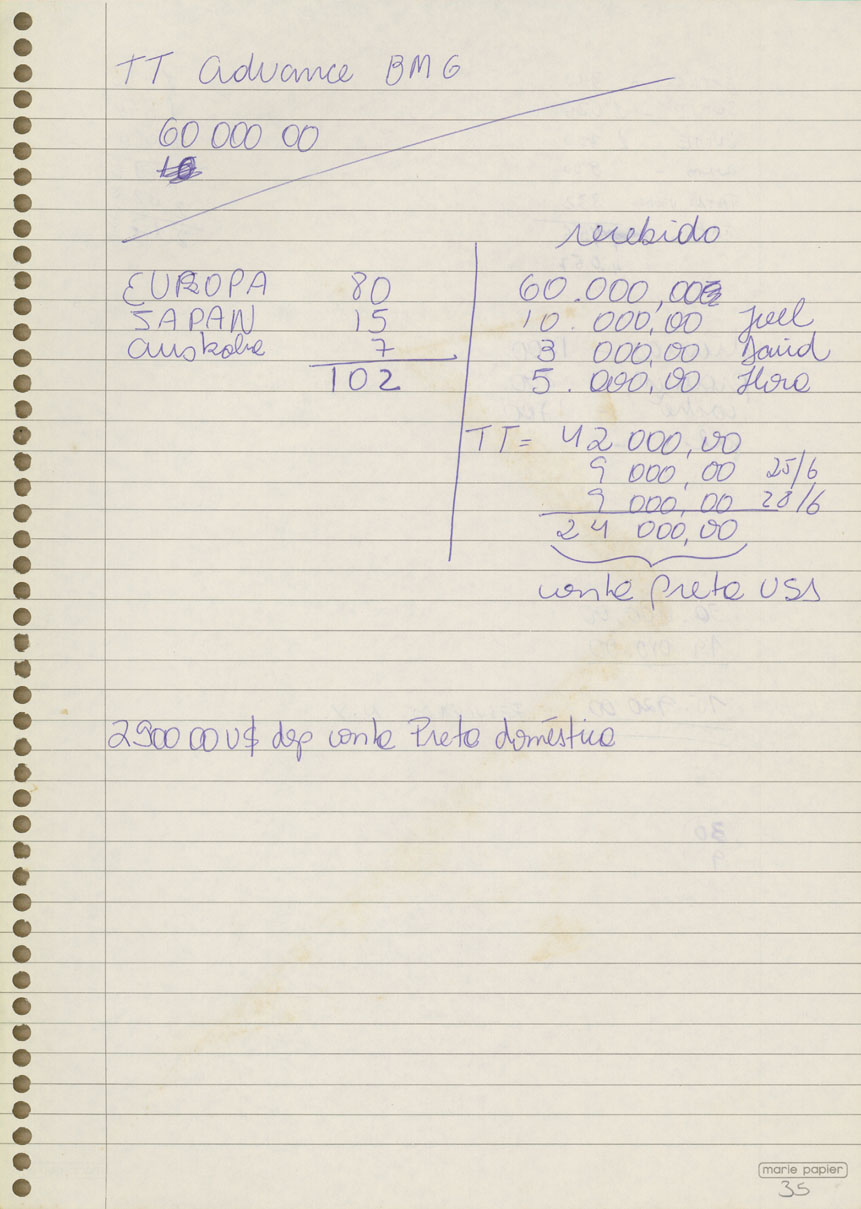 TT advance BMG
60 000 00
recebido
EUROPA 80
JAPAN 15
australia 7
102
60.000,00
10.000,00 Joel
3 000,00 David
5.000,00 Flora
TT= 42 000,00
9 000,00 25/6
9 000,00 28/6
24 000,00
conta Preta US$
2900 00 U$ dep conta Preta doméstica
marie papier
35